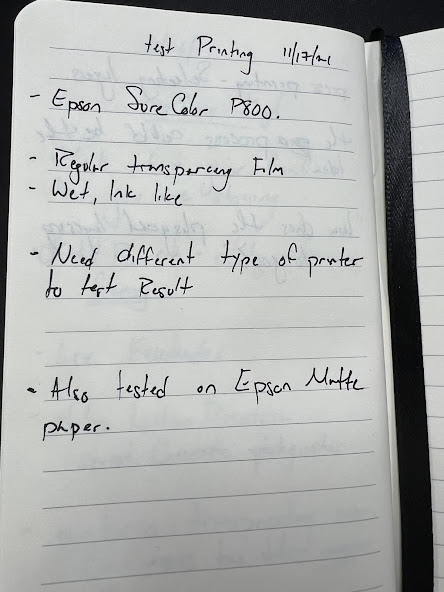 test Printing 11/17/21
- Epson SureColor P800.
- Regular transparency Film
- Wet, Ink like
- Need different type of printer
to test Result
- Also tested on Epson Matte
paper.